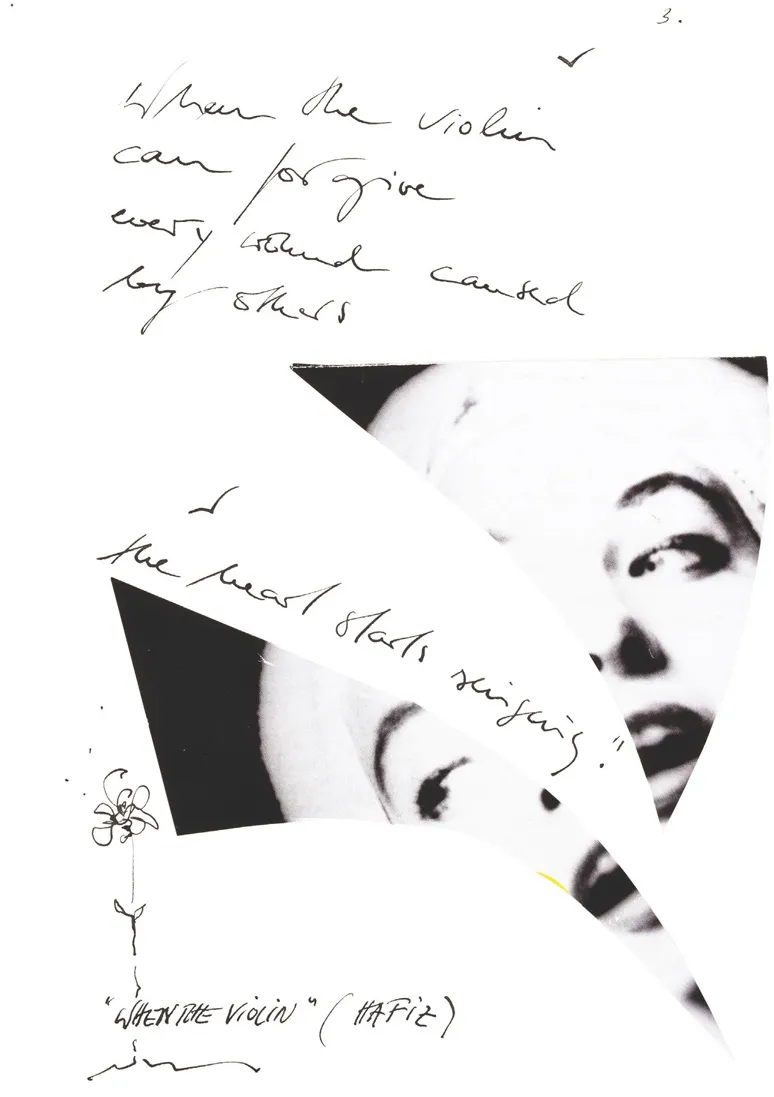 3.
When the violin
can forgive
every wound caused
by others
the heart starts singing."
"WHEN THE VIOLIN" (HAFIZ)